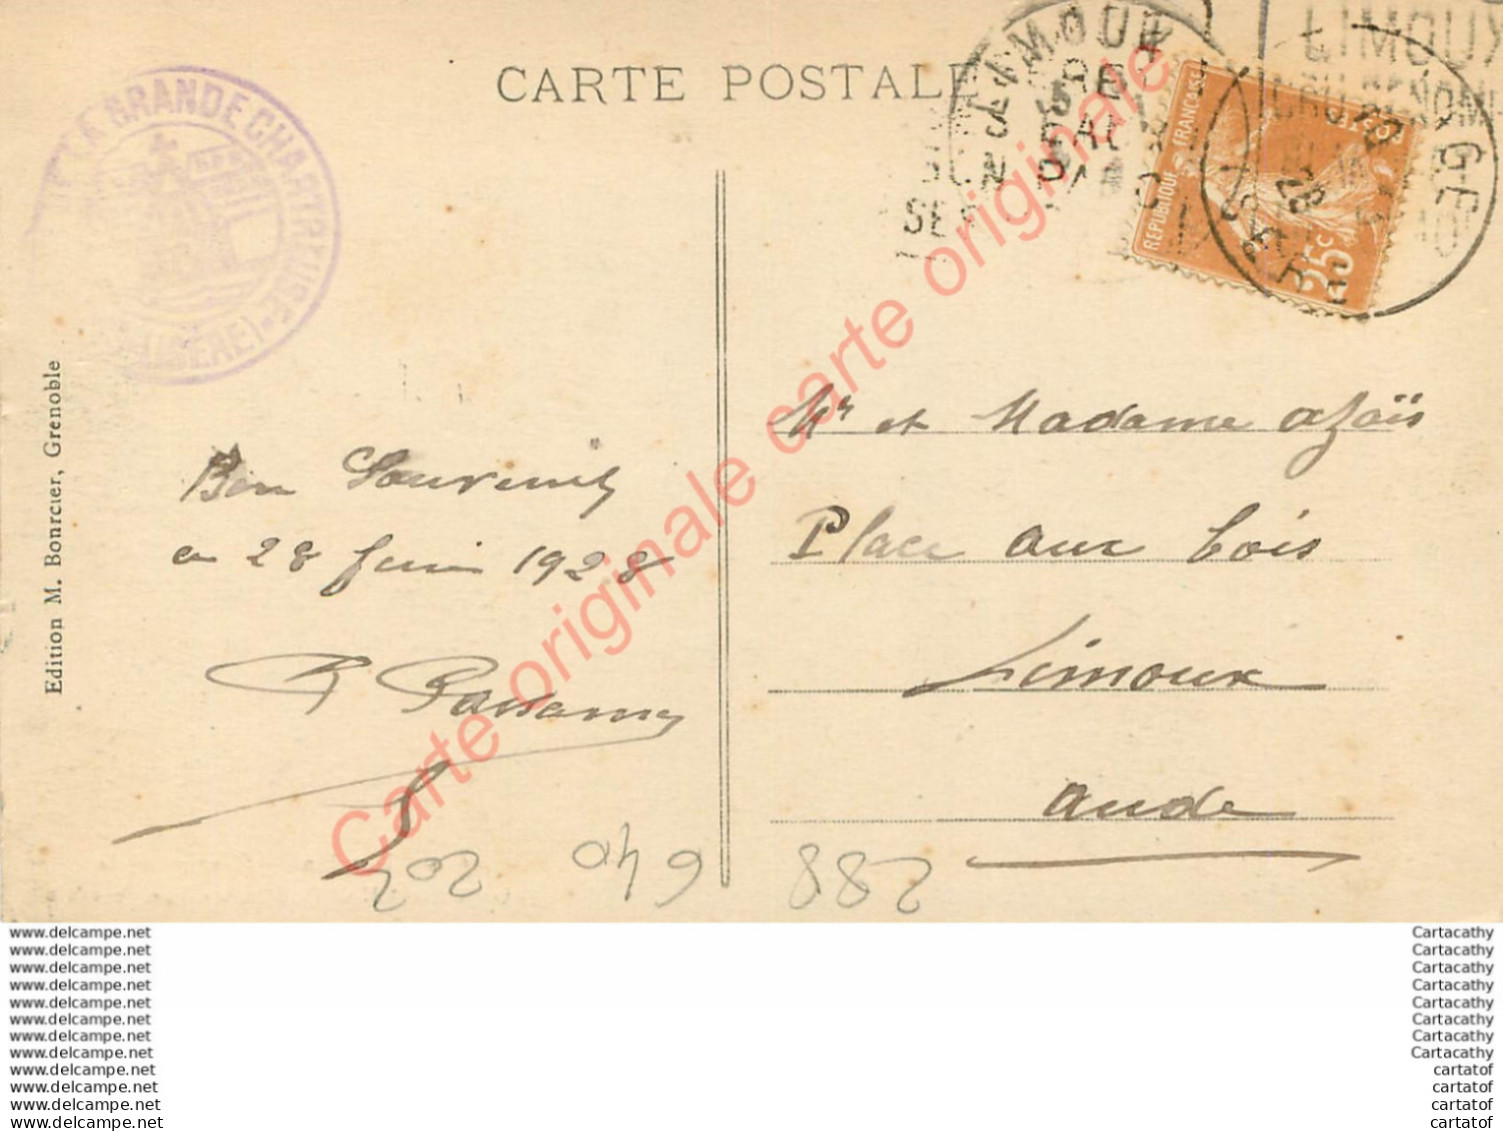 CARTE POSTALE
LA GRANDE CHARTREUSE
(ISÈRE)
LIMOUX
LIMOUX
REPUBLIQUE FRANÇAISE
25c
28
Edition M. Bonrcier, Grenoble
Bon Souvenir
en 28 Juin 1928
Mr et Madame Azaïs
Place aux bois
Limoux
Aude
288
640
202
Carte originale carte originale carte originale
www.delcampe.net
www.delcampe.net
www.delcampe.net
www.delcampe.net
www.delcampe.net
www.delcampe.net
www.delcampe.net
www.delcampe.net
www.delcampe.net
www.delcampe.net
www.delcampe.net
www.delcampe.net
Cartacathy
Cartacathy
Cartacathy
Cartacathy
Cartacathy
Cartacathy
Cartacathy
Cartacathy
cartatof
cartatof
cartatof
cartatof